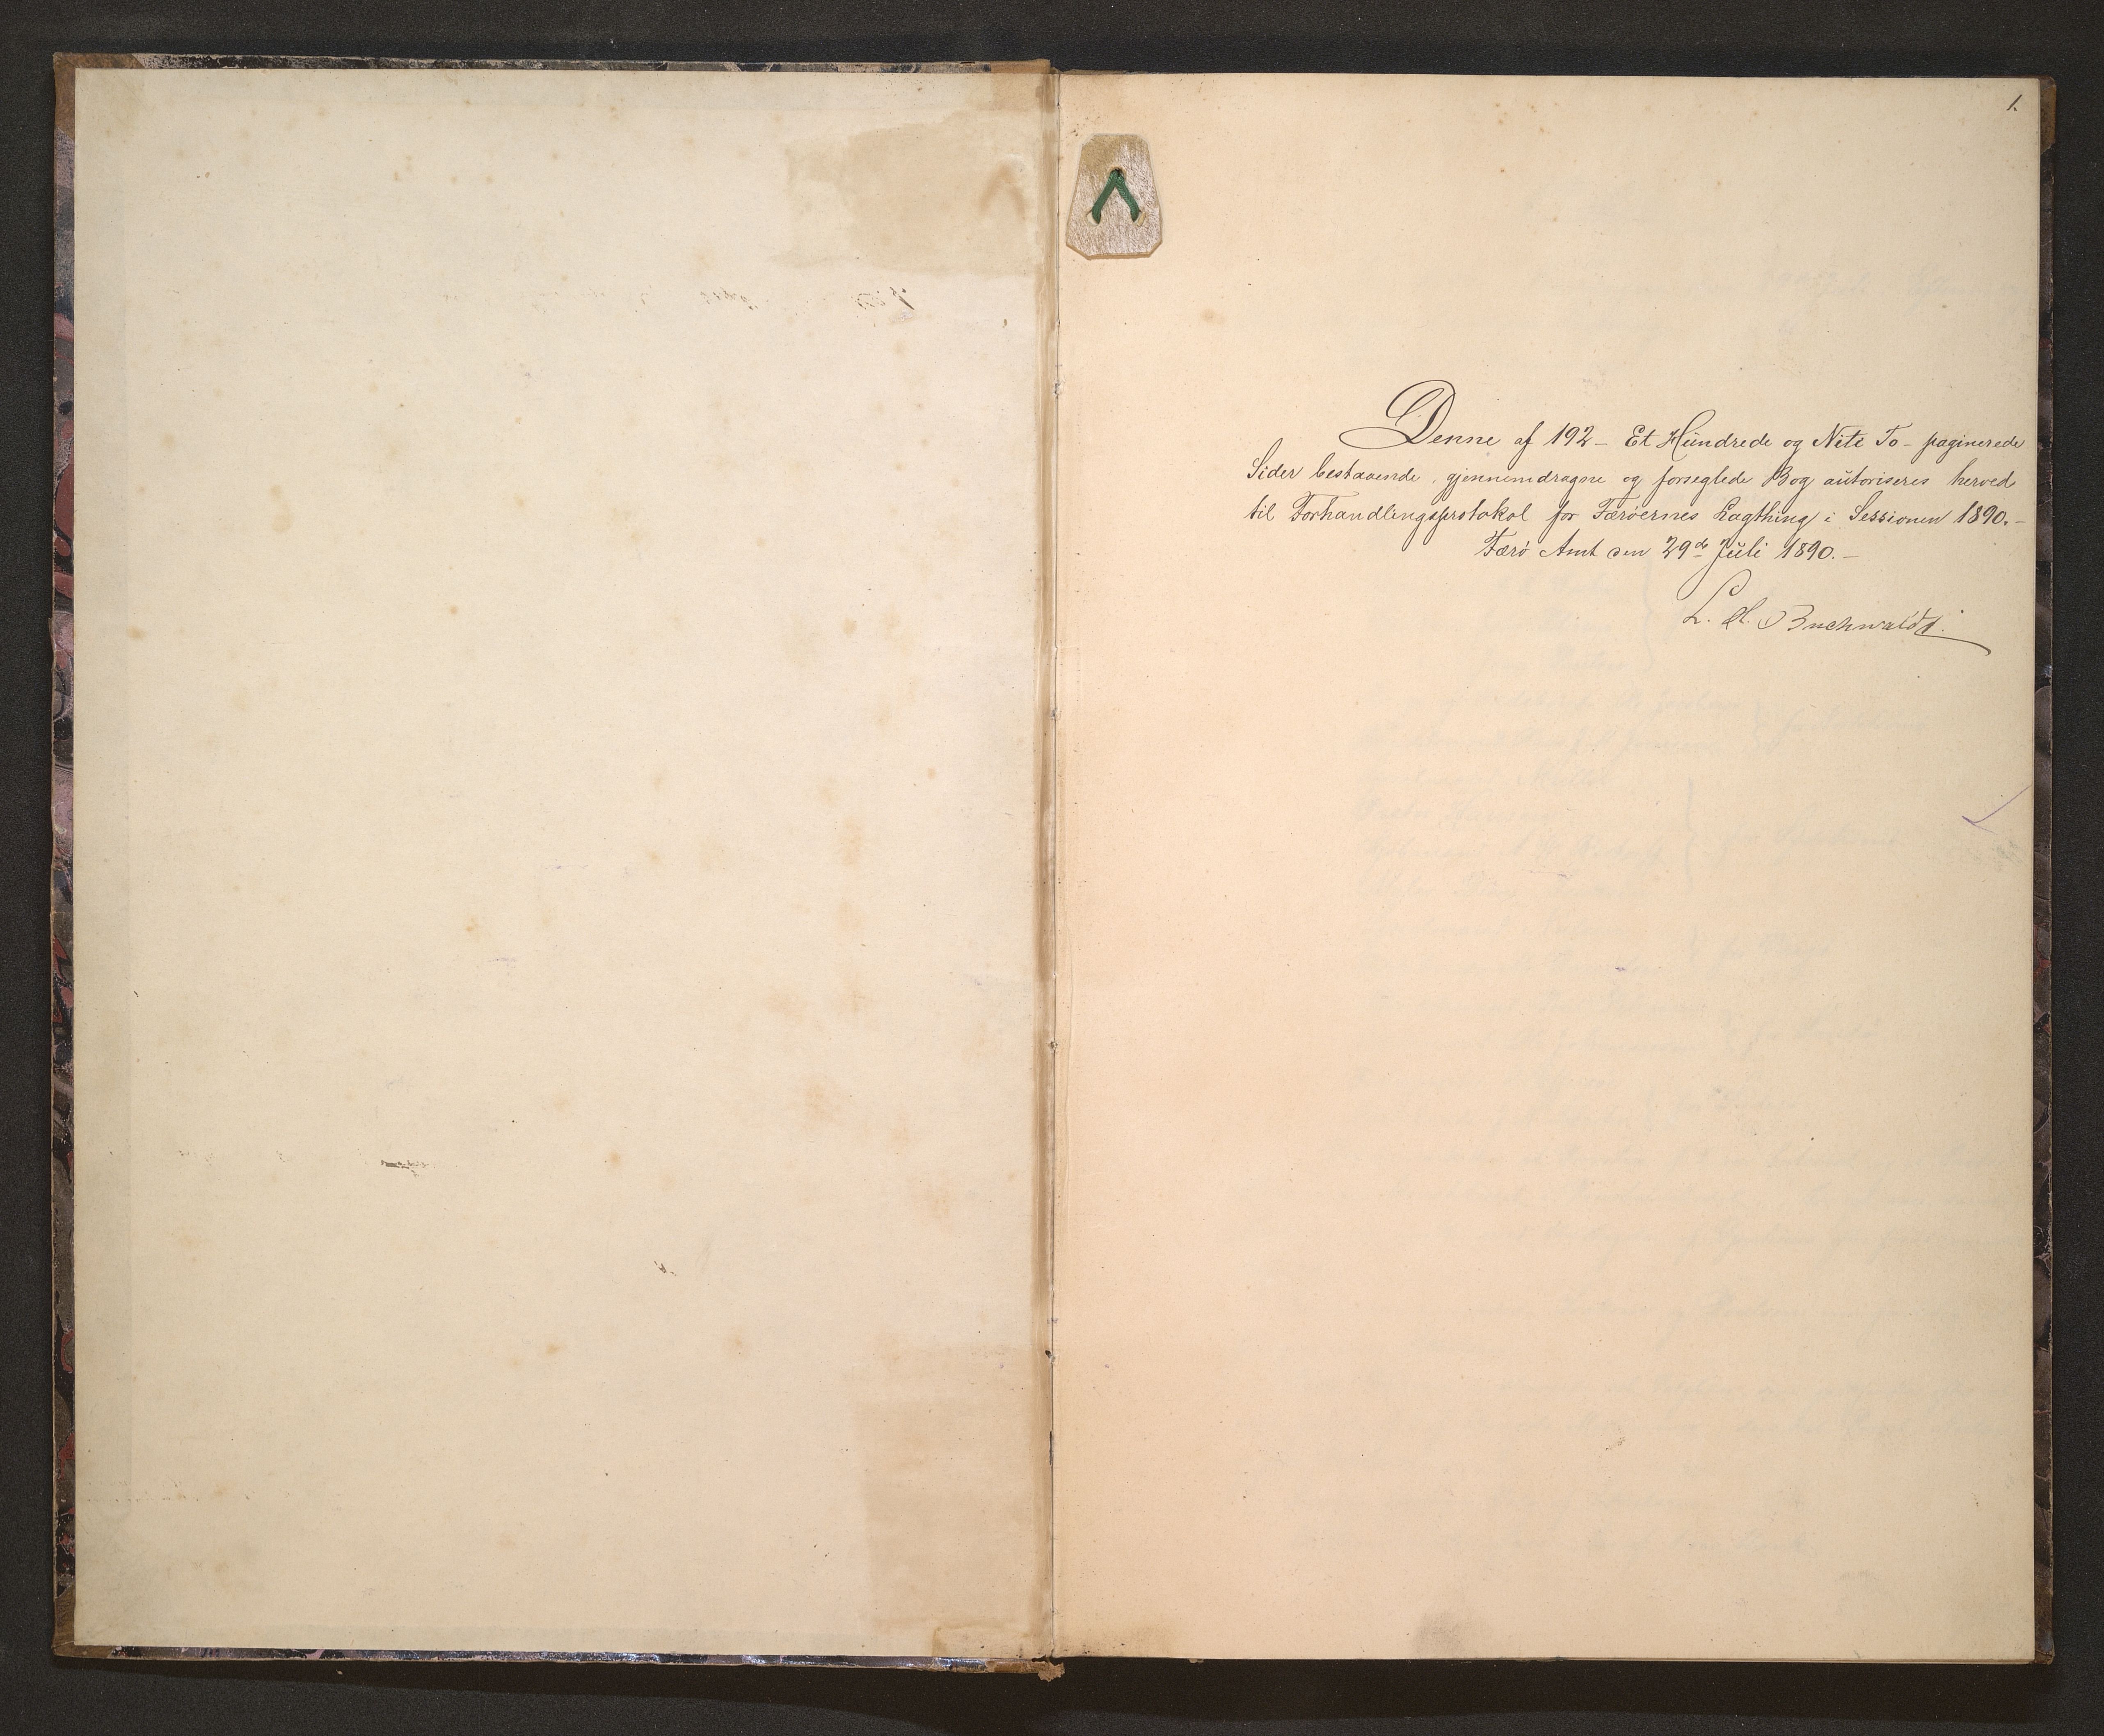 1.
Denne af 192 - Et Hundrede og Niti To - paginerede
Sider bestaaende, gjennemdragne og forseglede Bog autoriseres herved
til Forhandlingsprotokol for Færøernes Lagthing i Sessionen 1890.-
Færø Amt den 29de Juli 1890.-
L. H. Buchwaldt.